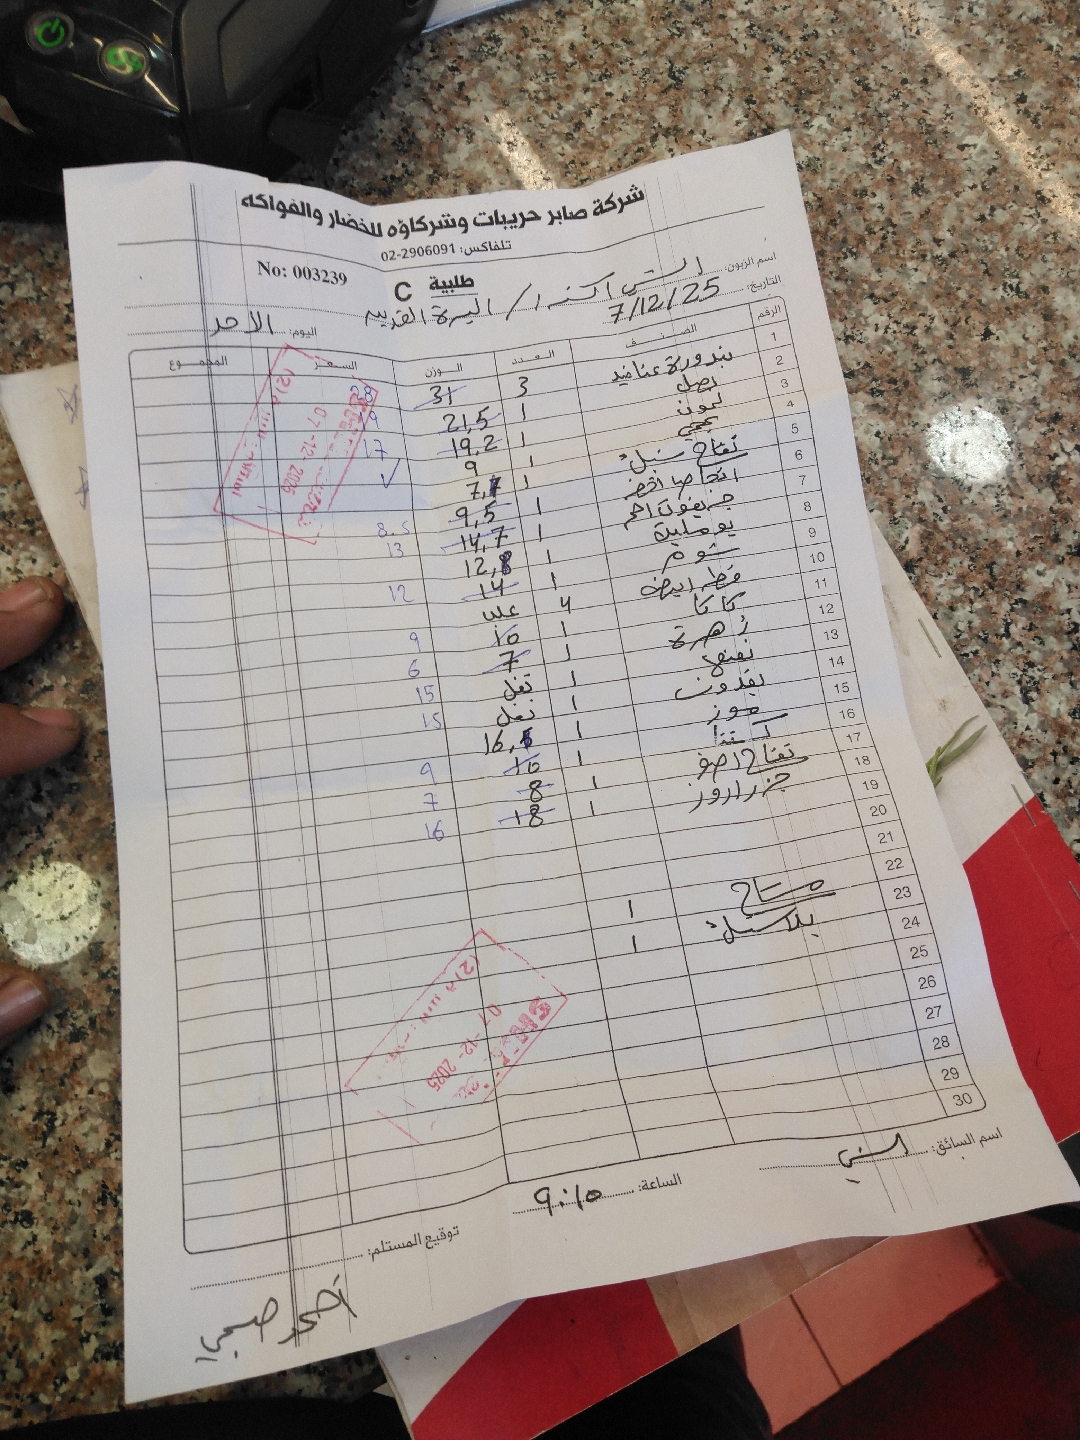 شركة صابر حريبات وشركاؤه للخضار والفواكه
تلفاكس: 02-2906091
No: 003239
طلبية C
اسم الزبون: / البلدة القديمة
التاريخ: 7/12/25
اليوم: الأحد
الرقم الصنف العدد الوزن السعر المجموع
1 بندورة عناقيد 3 31 28
2 بصل 1 21,5 19
3 ليمون 1 19.2 17
4 1 9
5 تفاح 1 7,
6 اجاص اخضر 1 9,5 8.5
7 احمر 1 14,7 13
8 بوملي 12,8
9 ثوم 1 14 12
10 فطر ابيض 4 علب
11 كاكا 1 10 9
12 زهرة 1 7 6
13 نعنع 1 15
14 بقدونس 1 15
15 موز 1 16,
16 كستنا 1 10 9
17 تفاح اصفر 1 8 7
18 جزر 1 18 16
19
20
21
22
23 مشتاح 1
24 بلاستيك 1
25
26
27
28
29
30
07-12-2025
07-12-2025
اسم السائق:
الساعة: 9:10
توقيع المستلم: